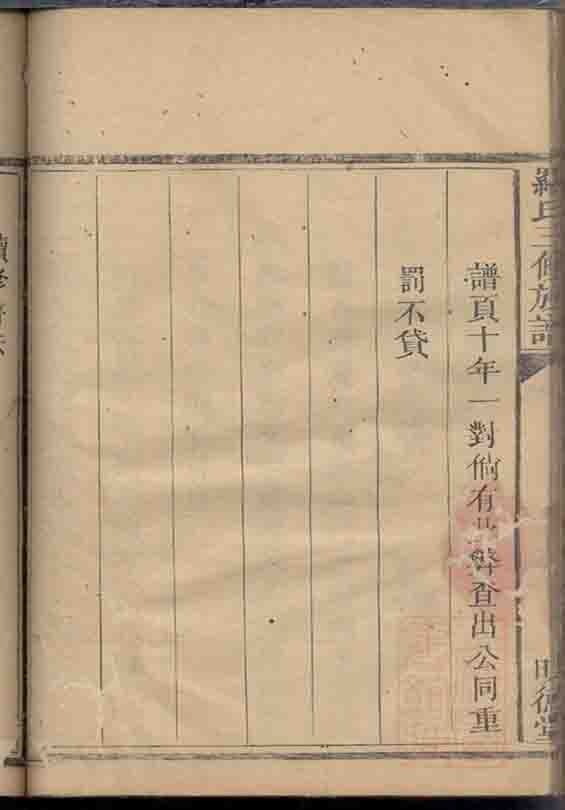 氏三修族譜
明德堂
譜頁十年一對倘有 弊查出公同重
罰不貸